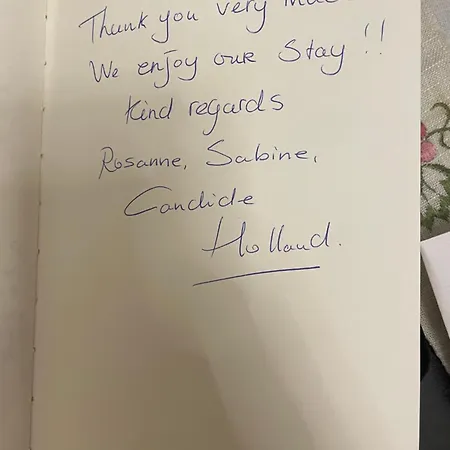 Thank you very much
We enjoy our Stay !!
Kind regards
Rosanne, Sabine,
Candide
Holland.